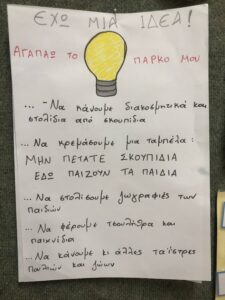 ΕΧΩ ΜΙΑ ΙΔΕΑ!
ΑΓΑΠΑΩ ΤΟ ΠΑΡΚΟ ΜΟΥ
... - Να κάνουμε διακοσμητικά και
στολίδια από σκουπίδια
... Να κρεμάσουμε μια ταμπέλα:
ΜΗΝ ΠΕΤΑΤΕ ΣΚΟΥΠΙΔΙΑ
ΕΔΩ ΠΑΙΖΟΥΝ ΤΑ ΠΑΙΔΙΑ
... Να στολίσουμε ζωγραφιές των
παιδιών
... Να φέρουμε τσουλήθρα και
παιχνίδια
... Να κάνουμε κι άλλες τα΄ί΄στρες
πουλιών και ζώων